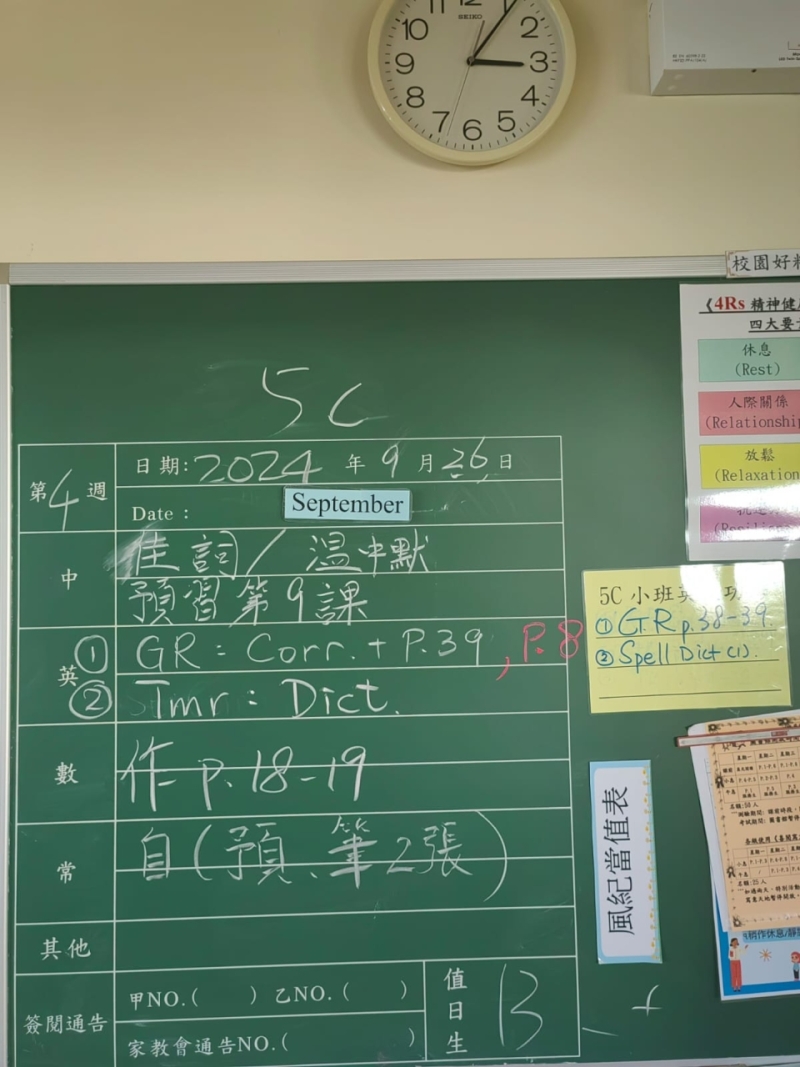 12 1
SEIKO
10 2
9 3
8 4
7 6 5
校園好
《4Rs 精神健
四大要
休息
(Rest)
人際關係
(Relationship
放鬆
(Relaxation
5C
第4週
日期:2024 年 9 月 26 日
Date :
September
中
佳詞/ 溫中默
預習第9課
英
① GR : Corr. + P.39 , P.8
② Tmr : Dict.
數
作 p. 18-19
常
自(預、筆2張)
其他
簽閱通告
甲NO.( ) 乙NO.( )
家教會通告NO.( )
值日生
13
5C 小班英 功
① G.R p.38-39.
② Spell Dict (1).
風紀當值表